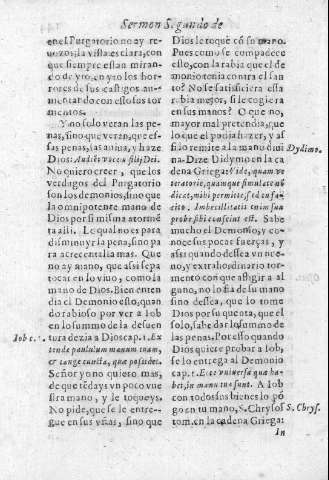 Sermon Segundo de
en el Purgatorio no ay re
uezos; la vista es clara, con
que siempre estan miran-
do de yro, en yzo los hor-
rores de sus castigos au-
mentando con esso sus tor
mentos.
Y no solo veran las pe-
nas, sino que veran, que es-
sas penas, las auiua, y haze
Dios: Audiet vocem filij Dei.
No quiero creer, que los
verdugos del Purgatorio
son los demonios, sino que
la omnipotente mano de
Dios por si misma atormē
ta alli. Lo qual no es para
disminuyr la pena, sino pa
ra acrecentalla mas. Que
no ay mano, que assi sepa
tocar en lo viuo, como la
mano de Dios. Bien enten
dia el Demonio esto, quan
do rabioso por ver a Iob
en lo summo de la desuen
Iob c. 1.
tura dezia a Dios cap. 1. Ex
tende paululum manum tuam,
et tange cuncta, quæ possidet.
Señor yo no quiero mas,
de que tēdays vn poco vue
stra mano, y le toqueys.
No pide, que se le entre-
gue en sus vñas, sino que
Dios le toque cõ su mano.
Pues como se compadece
esso, con la rabia que el de
monio tenia contra el san
to? No se satisficiera essa
rabia mejor, si le cogiera
en sus manos? O que no,
mayor mal pretendia, que
lo que el podia hazer, y as
si lo remite a la mano diui
na. Dize Didymo en la ca
Dydimo.
dena Griega: Vide, quam ve
teratorie, quamque simulate ait
dicat, mihi permitte, sed tu fa-
cito. Imbecillitatis enim suæ
probe sibi conscius est. Sabe
mucho el Demonio, y co-
noce sus pocas fuerças, y
assi quando dessea vn nue
uo, y extraordinario tor-
mento con que afligir a al
guno, no lo fia de su mano
sino dessea, que lo tome
Dios por su quenta, que el
solo, sabe dar lo summo de
las penas. Por esso quando
Dios quiere probar a Iob,
se lo entrega al Demonio
cap. 1. Ecce vniuersa quæ ha-
bet, in manu tua sunt. A Iob
con todos sus bienes lo po
go en tu mano, S. Chrysos
S. Chrys.
tom. en la cadena Griega:
In